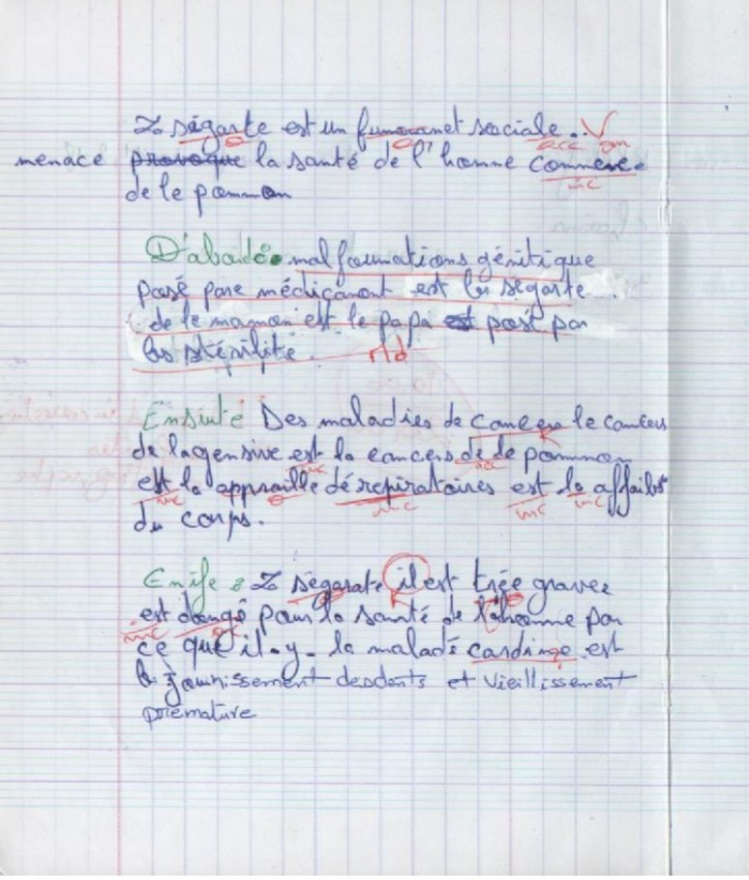 La ségarte est un fumoranet saciale.
menace provoque la santé de l'homme comme
de le pommon
D'abord: mal formations génitique
posé pare médicanont est les ségarte.
de le maman est le papa est posé par
les stérilité. rld
Ensiuté Des maladies de cancer le cancers
de lagensive est la cancers de de pommon
est le appraille dérepiratoires est de affaibs
du corps.
Enife: La ségarate il est trée graves
est dangé pour la santé de l'homme par
ce que il.y- la maladé cardinge est
le jaunissement desdents et vieillissement
prématuré